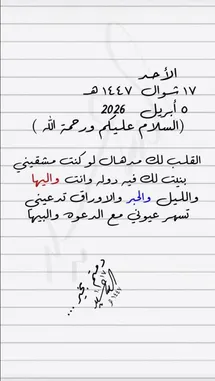 الأحد
١٧ شوال ١٤٤٧ هـ
٥ أبريل 2026
(السلام عليكم ورحمة الله)
القلب لك مدهال لو كنت مشقيني
بنيت لك فيه دوله وانت واليها
والليل والحبر والاوراق تدعيني
تسهر عيوني مع الدعوه والبيها
دمتم بخير ...